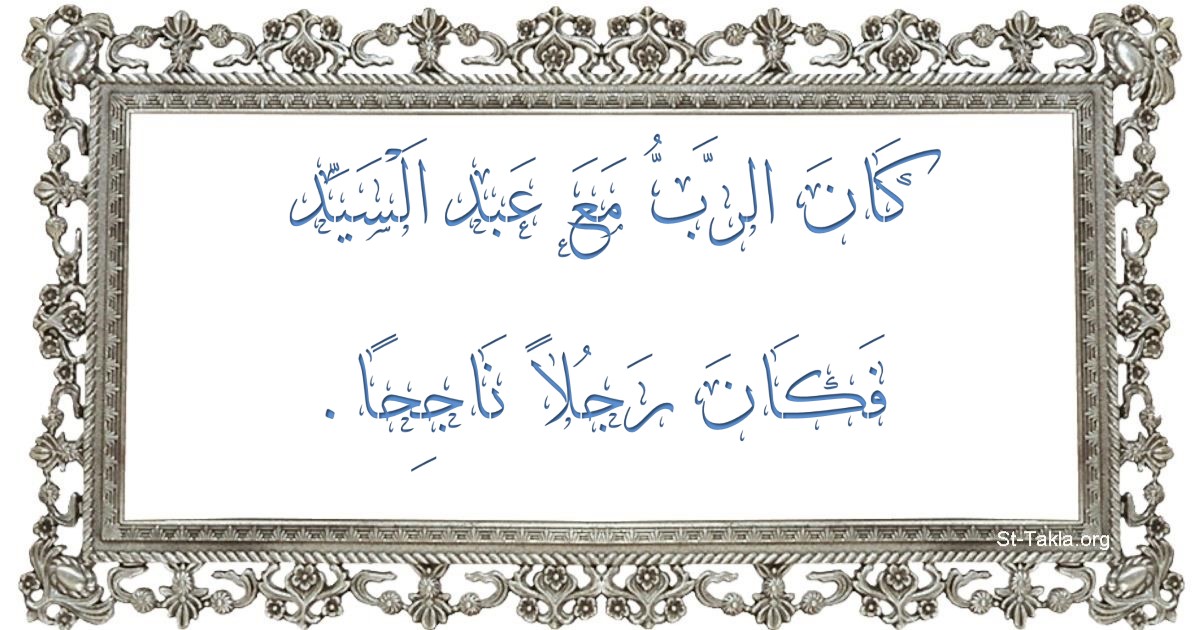 كَانَ الرَّبُّ مَعَ عَبْد اَلْسَيِّد
فَكَانَ رَجُلاً نَاجِحًا .
St-Takla.org